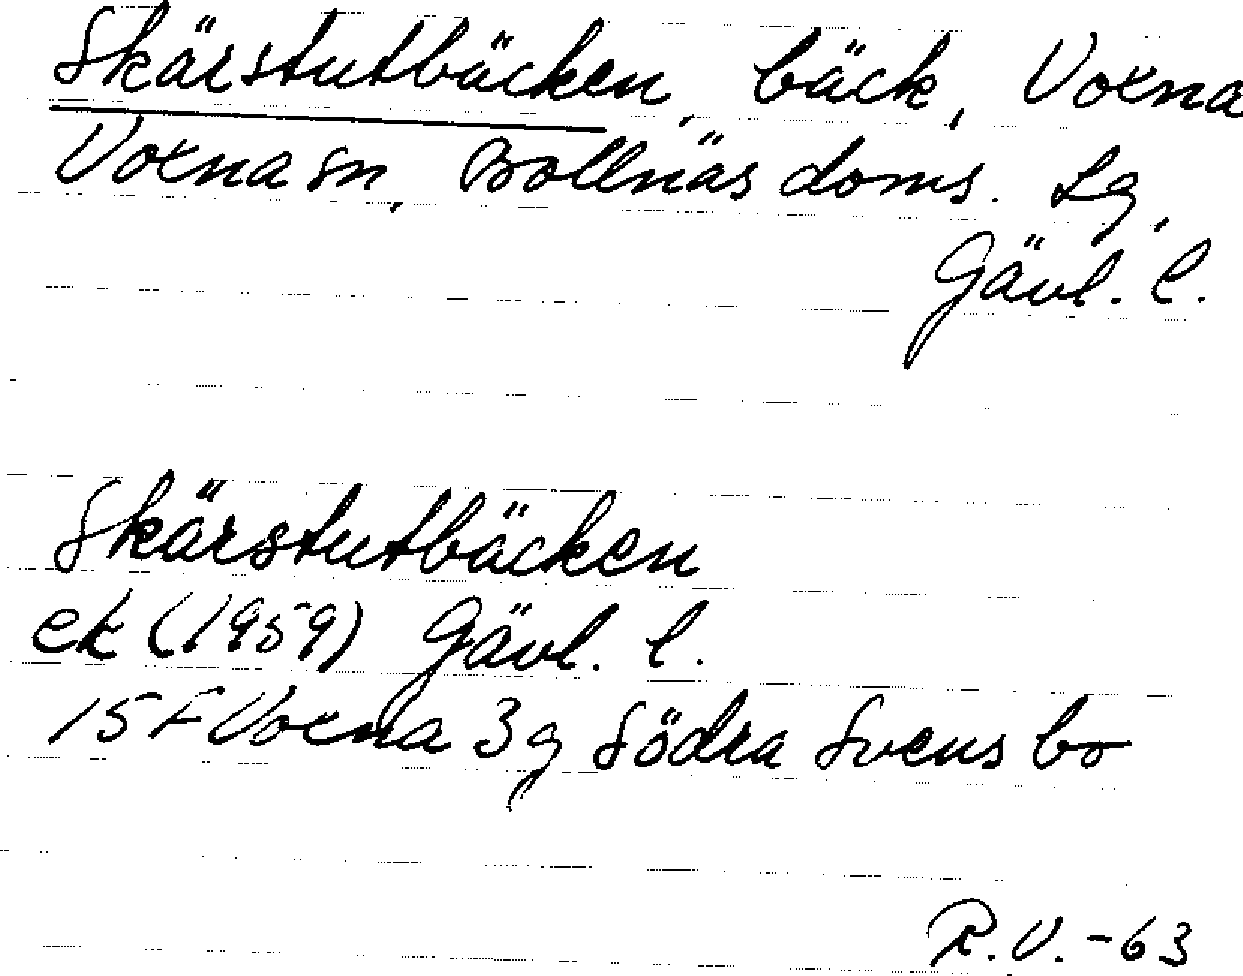 Skärstutbäcken, bäck, Voxna
Voxna sn, Bollnäs doms. Lg,
Gävl. l.
Skärstutbäcken
ek (1959) Gävl. l.
15 F Voxna 3 g Södra Svensbo
R.V. -63